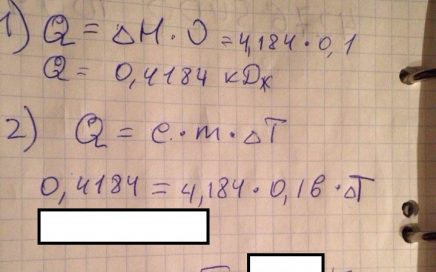 1) Q = ΔH · ν = 4,184 · 0,1
Q = 0,4184 кДж
2) Q = c · m · ΔT
0,4184 = 4,184 · 0,16 · ΔT